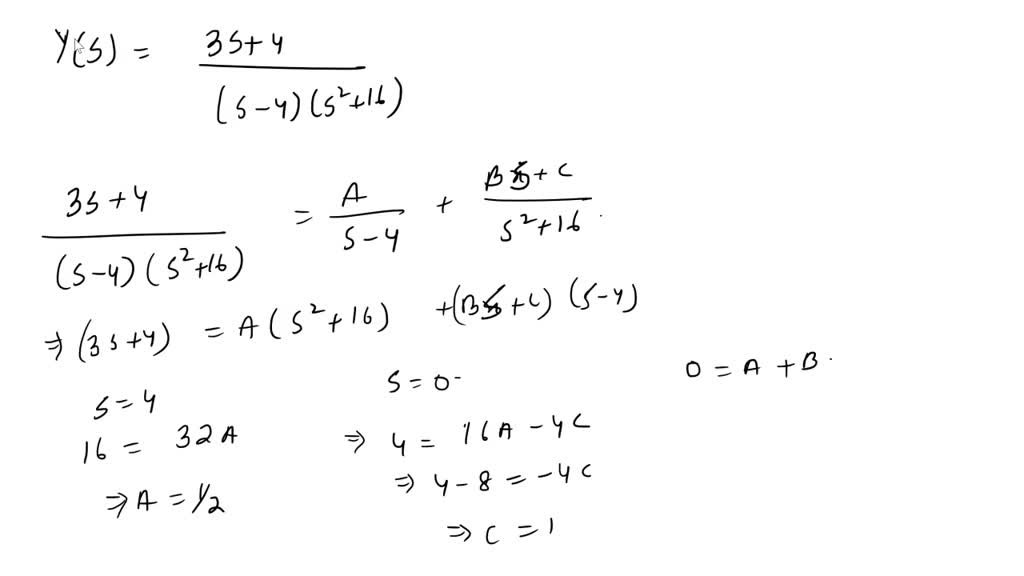 Y(s) = 3s+4 / (s-4)(s²+16)
3s+4 / (s-4)(s²+16) = A / s-4 + Bs+C / s²+16.
⇒ (3s+4) = A(s²+16) + (Bs+C)(s-4)
s=4
16 = 32A
⇒ A = 1/2
s=0
⇒ 4 = 16A - 4C
⇒ 4-8 = -4C
⇒ C = 1
0 = A+B.